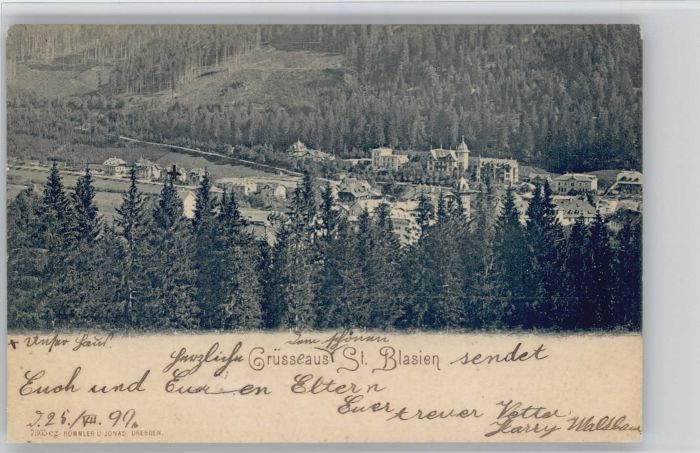 + Unser Haus! dem schönen
Herzliche Grüsse aus St. Blasien sendet
Euch und Euren Eltern
Euer treuer Vetter
d. 25./VII. 99. Harry
7305 cg. RÖMMLER U. JONAS, DRESDEN.